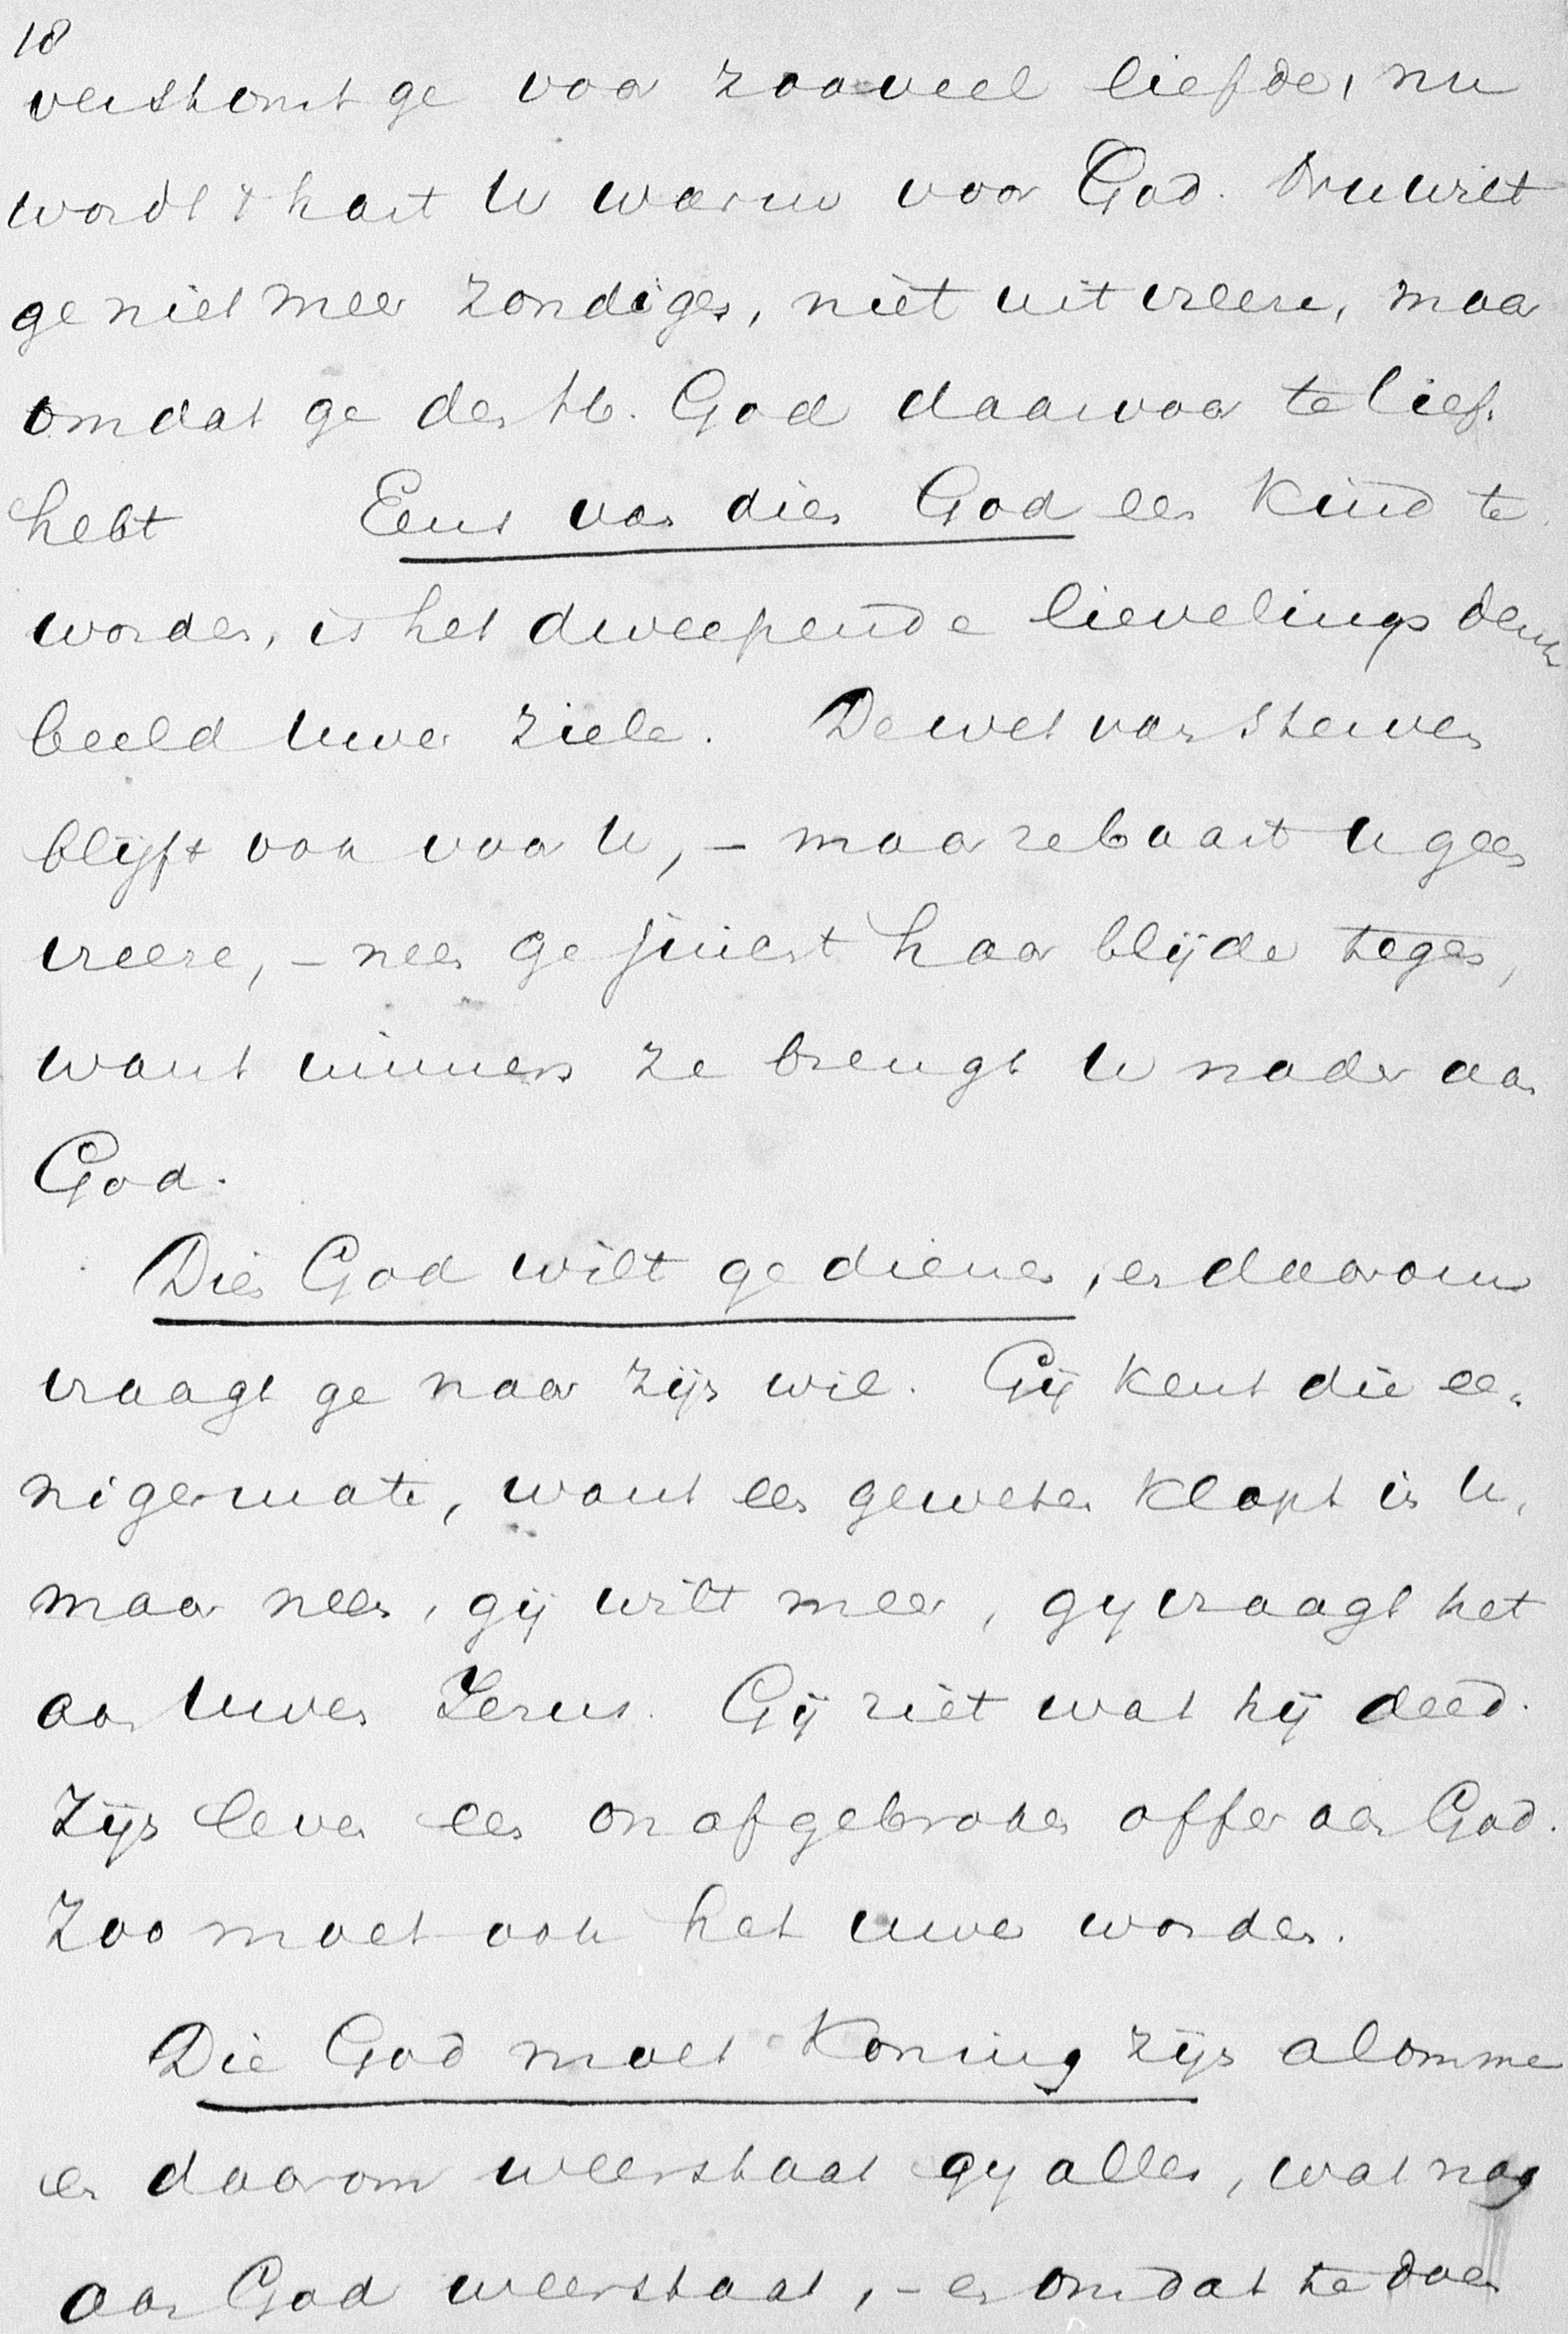 18
verstomt ge voor zooveel liefde, nu
wordt 't hart U warm voor God. Nu wilt
ge niet meer zondigen, niet uit vreeze, maar
omdat ge den H. God daarvoor te lief
hebt Eens van dien God een kind te
worden, is het dweepende lievelings denk
beeld Uwer ziele. De wet van sterven
blijft ook voor U, – maar ze baart U geen
vreeze, – neen ge juicht haar blijde tegen,
want immers ze brengt U nader aan
God.
Dien God wilt ge dienen, en daarom
vraagt ge naar zijn wil. Gij kent die ee-
nigermate, want een geweten klopt in U,
maar neen, gij wilt meer, gij vraagt het
aan Uwen Jezus. Gij ziet wat hij deed.
Zijn leven een onafgebroken offer aan God.
Zoo moet ook het uwe worden.
Die God moet Koning zijn alomme
en daarom weerstaat gij alles, wat nog
aan God weerstaat, – en om dat te doen